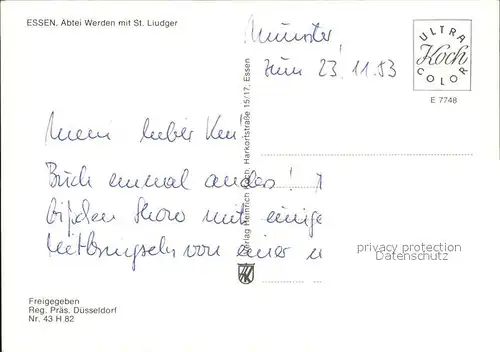 ESSEN, Abtei Werden mit St. Liudger
Münster,
zum 23.11.83
ULTRA
Koch
COLOR
E 7748
Mein lieber Ken!
Buch einmal anders!
bißchen Show mit einige
Mitbringseln von einer
Verlag Heinrich Koch, Harkortstraße 15/17, Essen
privacy protection
Datenschutz
Freigegeben
Reg. Präs. Düsseldorf
Nr. 43 H 82